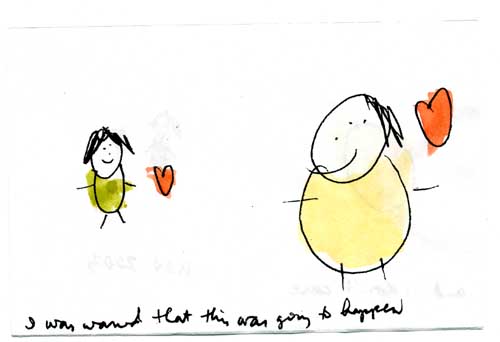 I was warned that this was going to happen